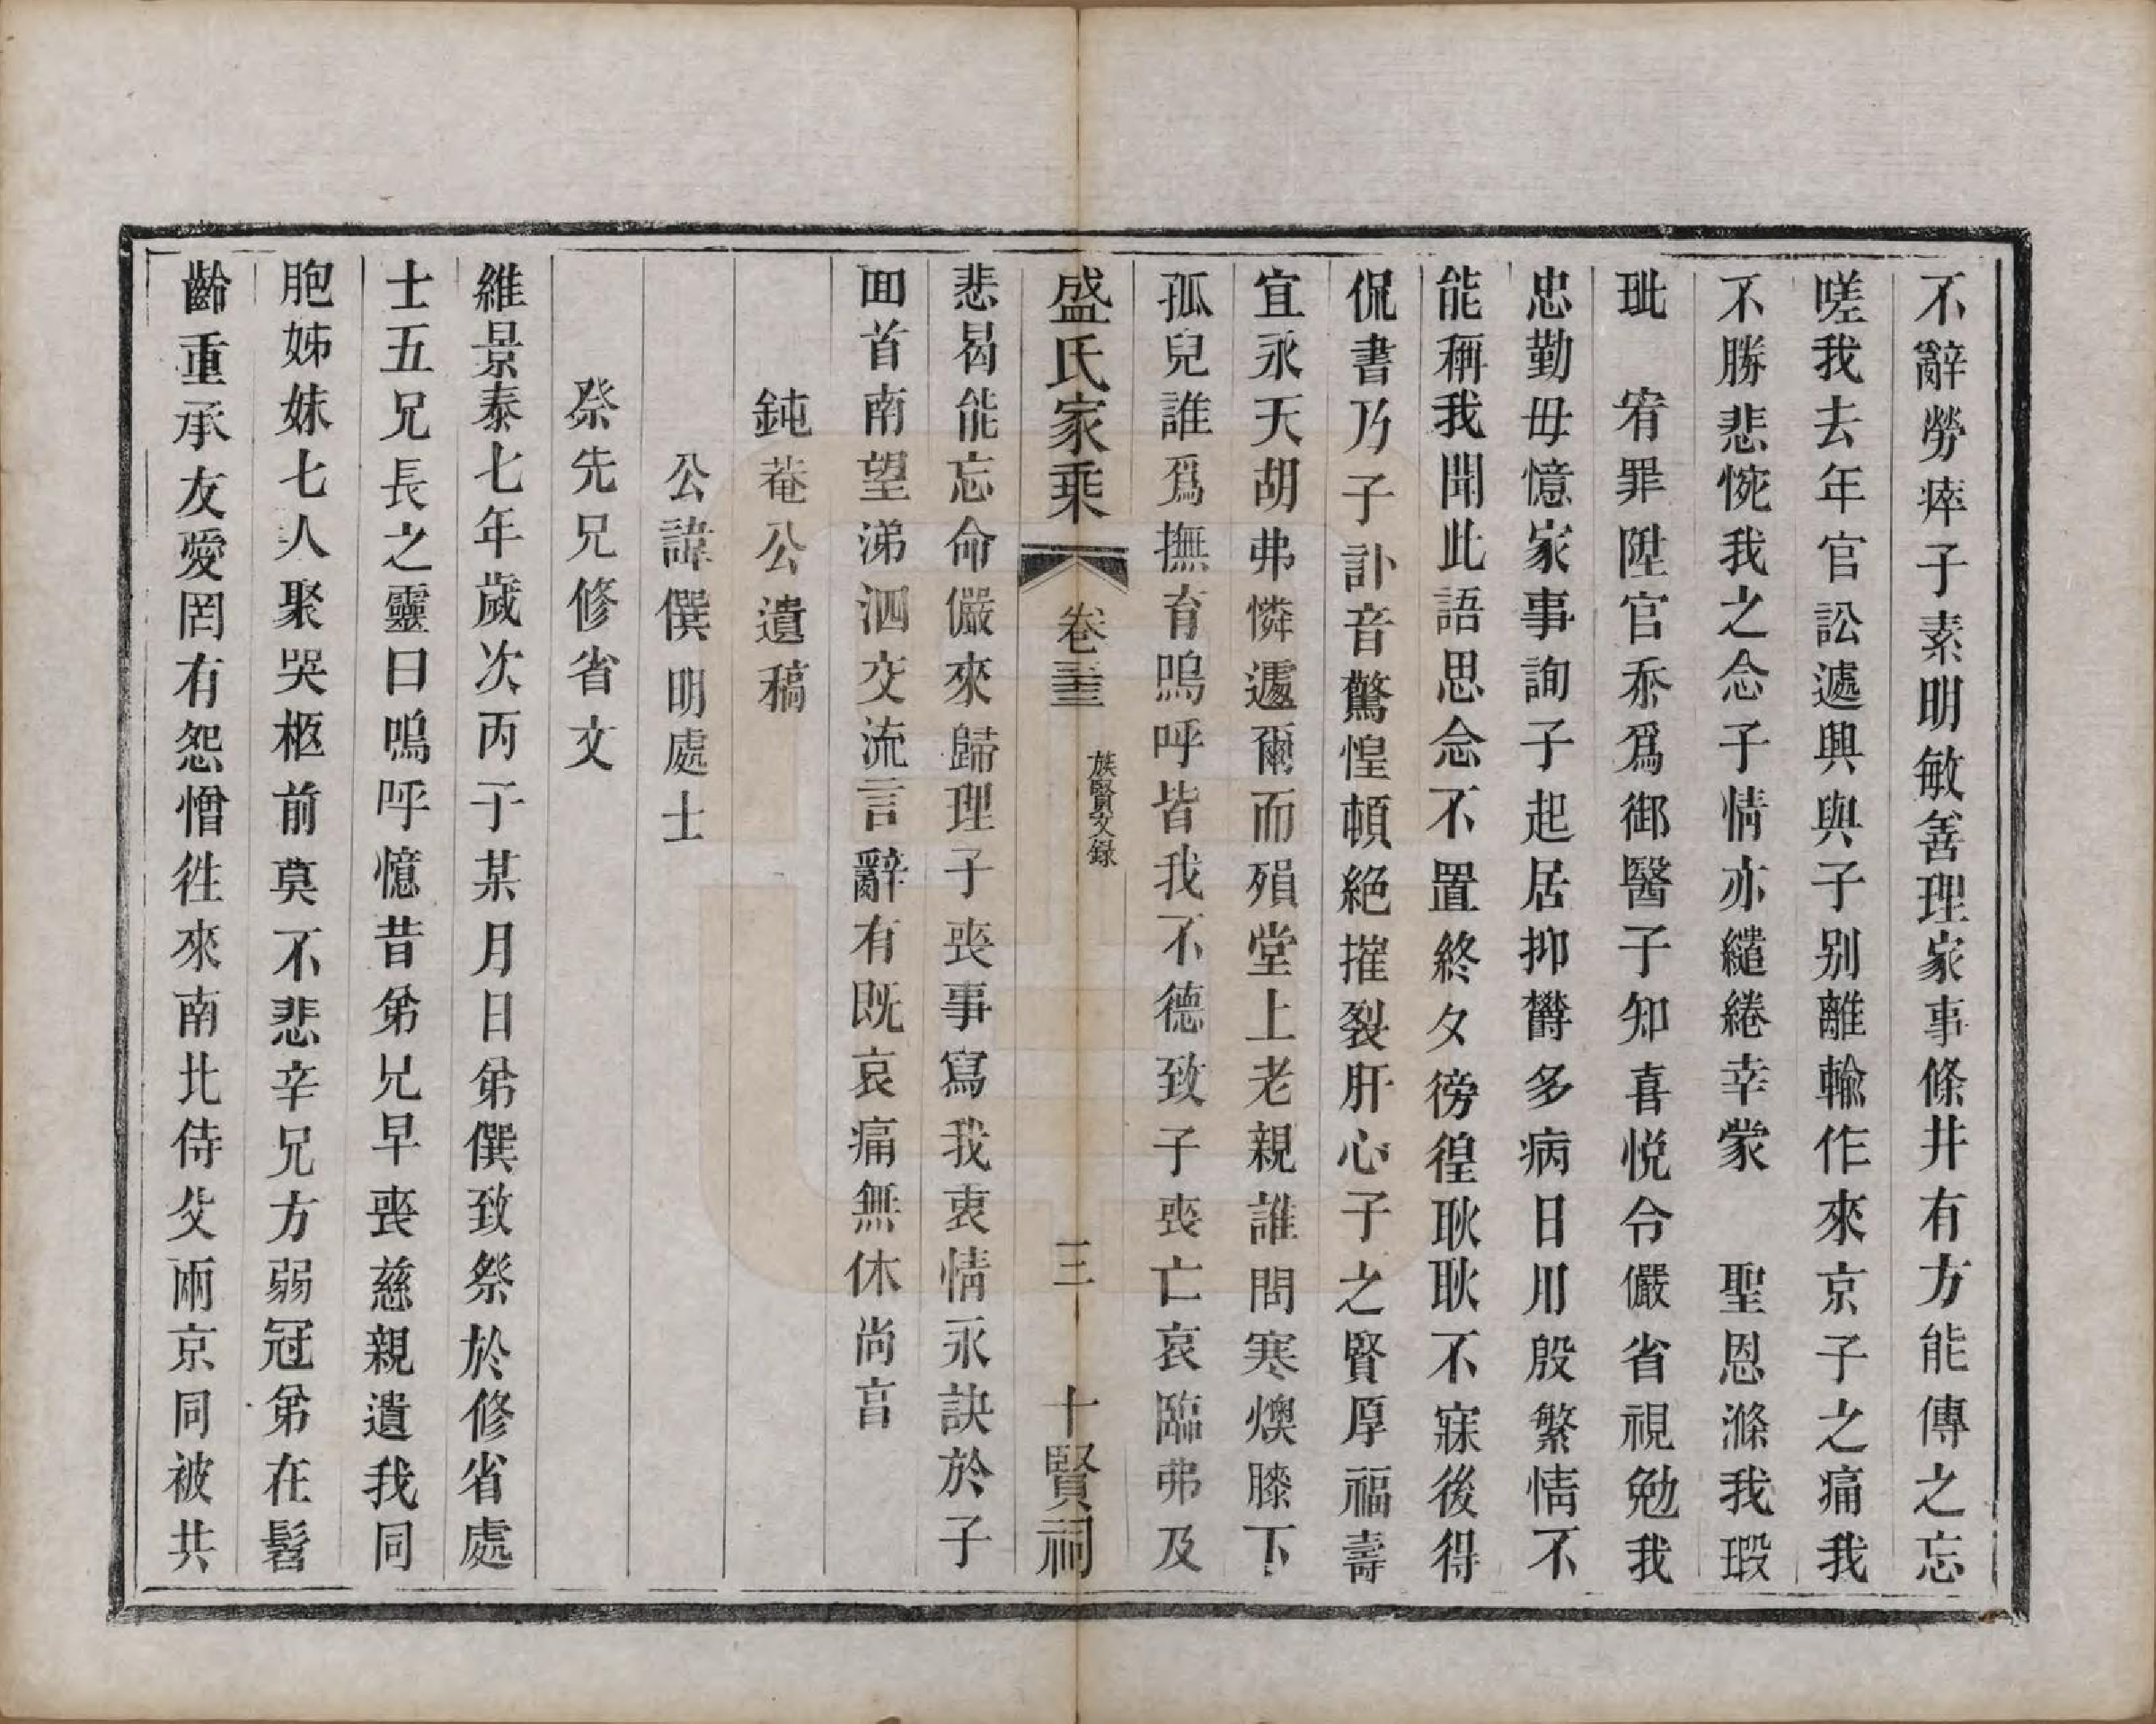 不辭勞瘁子素明敏善理家事條井有方能傳之忘
嗟我去年官訟遽興與子别離輸作來京子之痛我
不勝悲惋我之念子情亦繾綣幸蒙　聖恩滌我瑕
玼　宥罪陞官忝爲御醫子知喜悦令儼省視勉我
忠勤毋憶家事詢子起居抑鬱多病日用殷繁情不
能稱我聞此語思念不置終夕徬徨耿耿不寐後得
侃書乃子訃音驚惶頓絶摧裂肝心子之賢厚福壽
宜永天胡弗憐遽爾而殞堂上老親誰問寒燠膝下
孤兒誰爲撫育嗚呼皆我不德致子喪亡哀臨弗及
盛氏家乘　卷三十三　族賢文錄　三　十賢祠
悲曷能忘命儼來歸理子喪事寫我衷情永訣於子
囬首南望涕泗交流言辭有既哀痛無休尚享
鈍菴公遺稿
公諱僎明處士
祭先兄修省文
維景泰七年歲次丙子某月日弟僎致祭於修省處
士五兄長之靈曰嗚呼憶昔弟兄早喪慈親遺我同
胞姊妹七人聚哭柩前莫不悲辛兄方弱冠弟在髫
齡重承友愛罔有怨憎徃來南北侍父兩京同被共